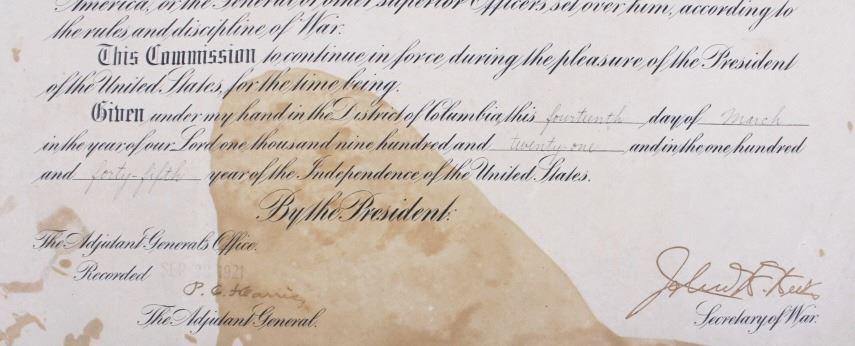 America, or the General or other superior Officers set over him, according to
the rules and discipline of War.
This Commission to continue in force during the pleasure of the President
of the United States, for the time being.
Given under my hand in the District of Columbia, this fourteenth day of March
in the year of our Lord one thousand nine hundred and twenty-one and in the one hundred
and forty-fifth year of the Independence of the United States.
By the President:
The Adjutant General's Office.
Recorded SEP 22 1921
P. C. Harris
The Adjutant General.
John W. Weeks
Secretary of War.